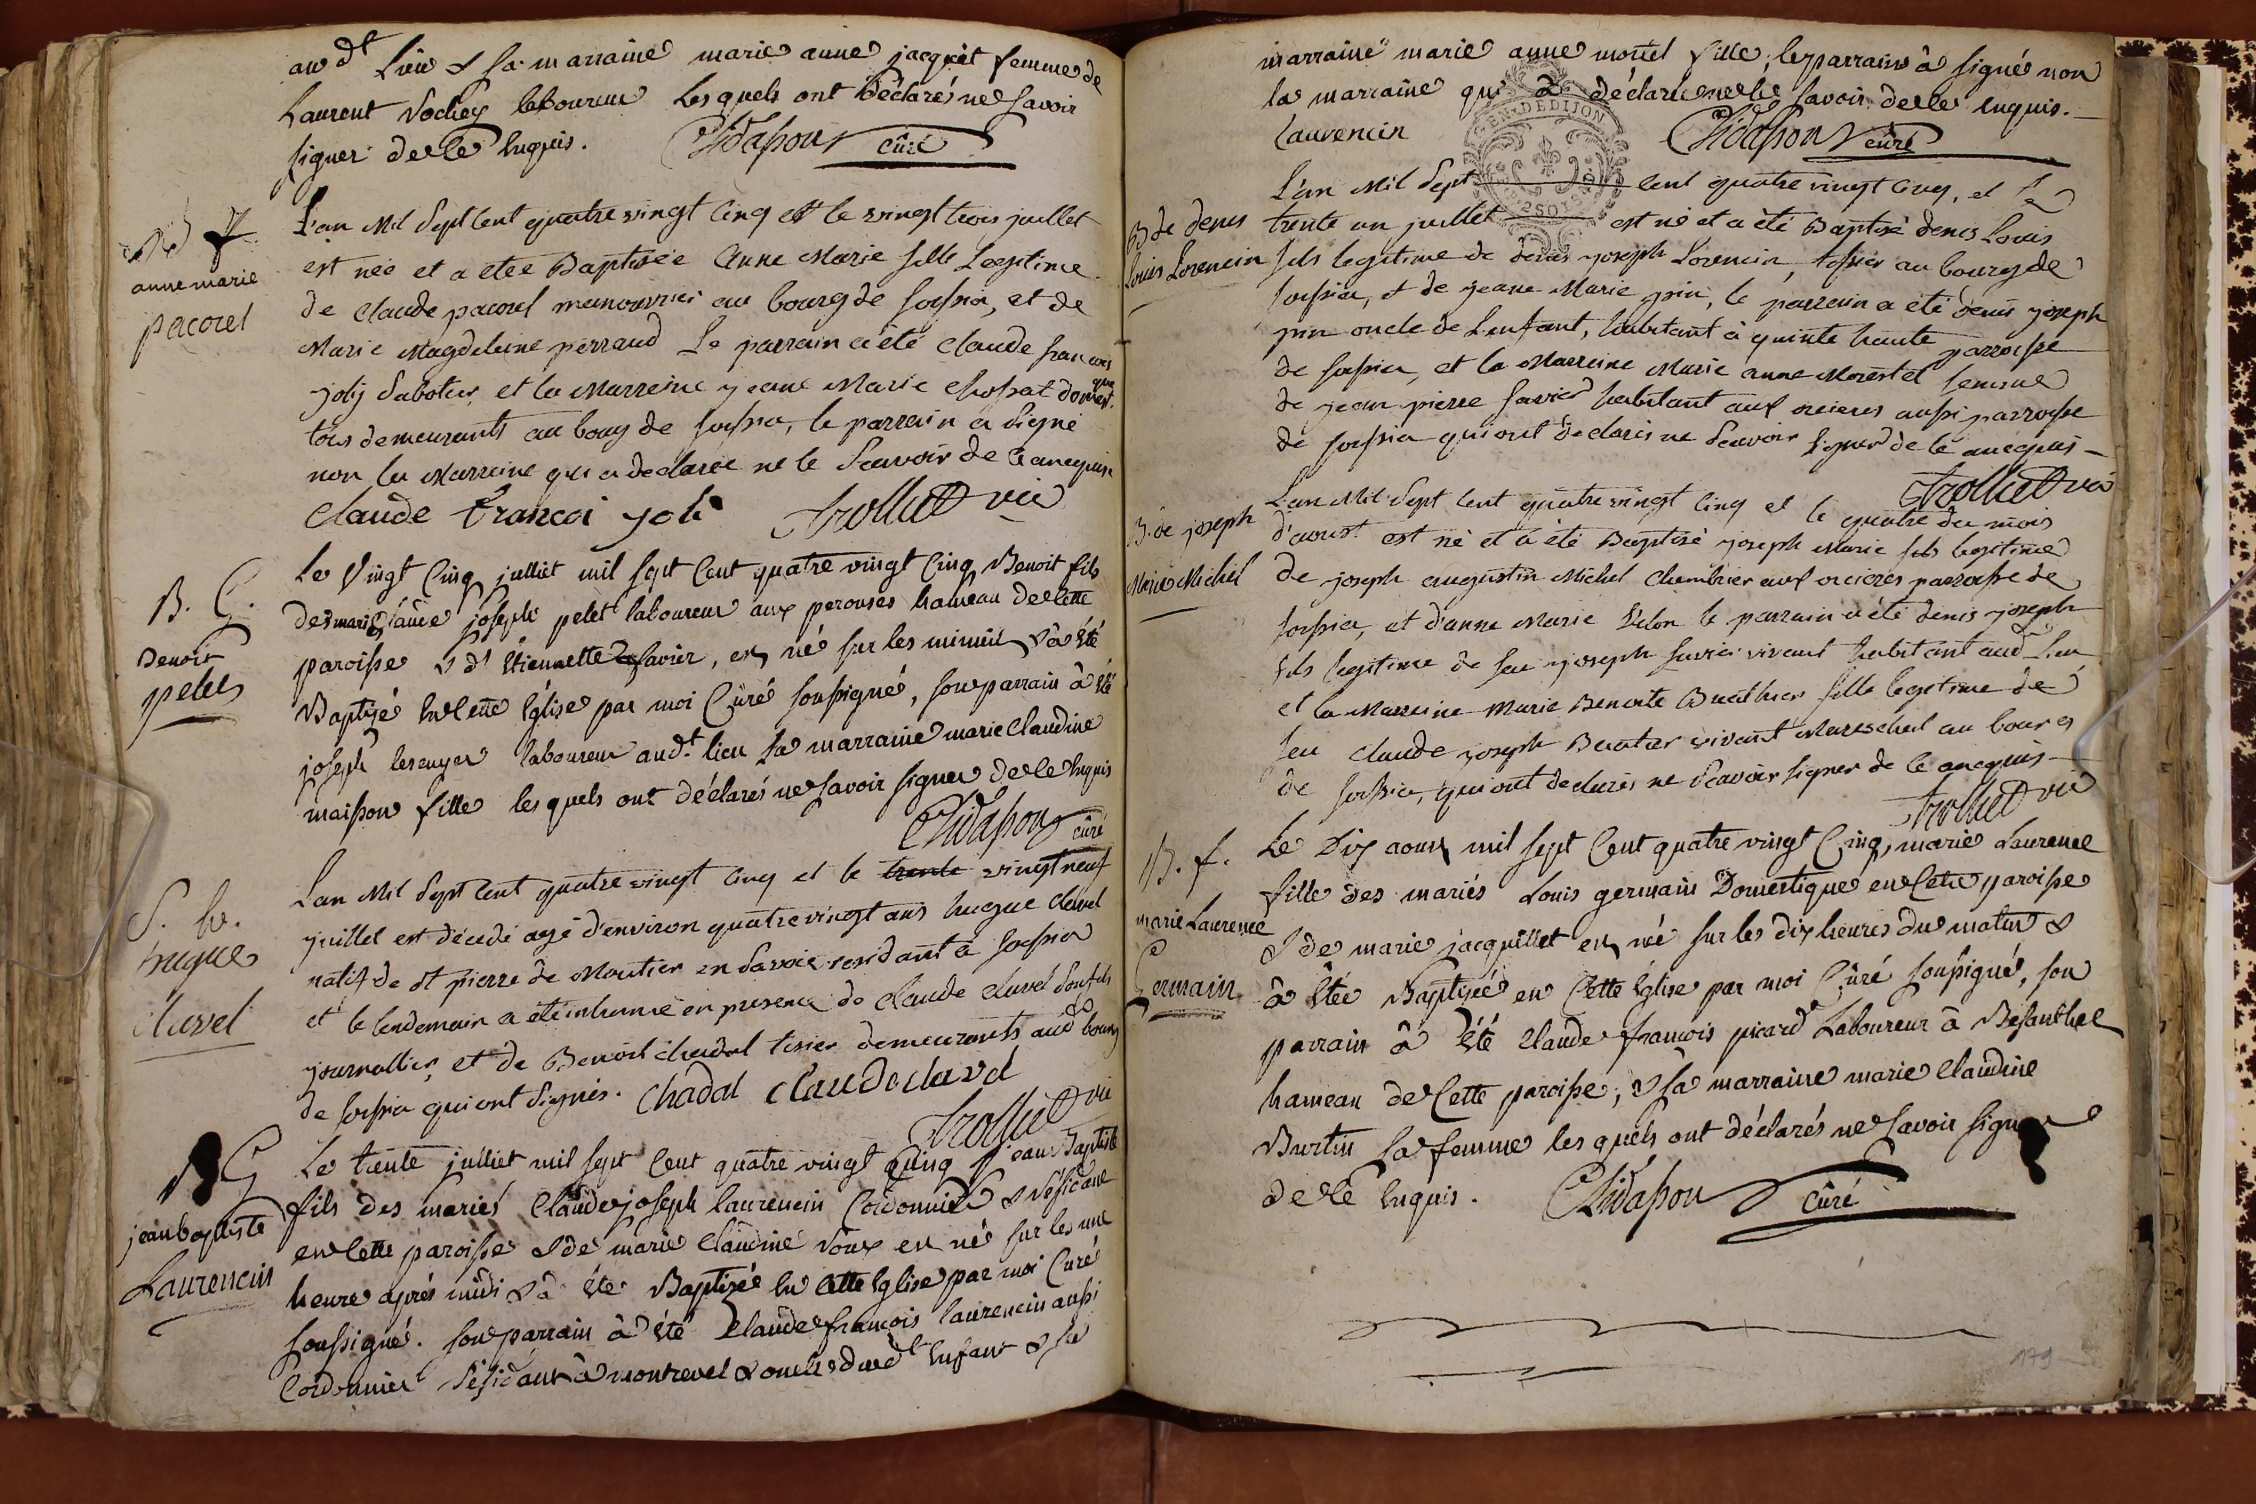 aud.t Lieu & sa marraine marie anne jacquet femme de
Laurent Vochey laboureur lesquels ont déclarés ne savoir
signer de ce enquis. Chidasson curé
anne marie
pacoret
L'an Mil Sept Cent quatre vingt Cinq et le vingt trois juillet
est née et a etée Baptisée Anne Marie fille Legitime
de Claude pacoret manouvrier au bourg de foissia, et de
Marie Magdeleine perraud Le parrain a été Claude francois
joly Sabotier, et la Marreine jeane Marie Chossat domestique
tous demeurants au bourg de foissia, le parrain a Signé
non la Marreine qui a declarée ne le Scavoir de ce anequise
Claude francoi yoli Trolliet vic
B. G.
Benoit
pelet
Le Vingt Cinq juilliet mil sept Cent quatre vingt Cinq Benoit fils
des mariés Claude joseph pelet laboureur aux perouses hameau de Cette
paroisse & d' Etiennette favier, est né sur les minuit & à été
Baptisé en Cette Eglise par moi Curé soussigné, son parrain à été
joseph lescuyer laboureur aud.t lieu Sa marraine marie Claudine
maisson fille lesquels ont déclarés ne savoir signer de ce enquis
Chidasson curé
S. h.
hugue
Clavel
L'an Mil Sept Cent quatre vingt Cinq et le trente vingt neuf
juillet est décédé agé d'environ quatre vingt ans hugue Clavel
natif de St pierre de Moutier en Savoie residant à foissia
et le lendemain a été inhumé en presence de Claude Clavel son fils
journallier, et de Benoit Chadal tisier demeurants aud bourg
de foissia qui ont Signés. Chadal Claude clavel
Trolliet vic
B G
jean baptiste
Laurencin
Le trente juilliet mil sept Cent quatre vingt Cinq jean Baptiste
fils des mariés Claude joseph laurencin Cordonnier & Résidant
en Cette paroisse & de marie Claudine Roux est né sur les une
heure aprés midi & à été Baptisé en Cette Eglise par moi Curé
soussigné. son parrain à été Claude françois laurencin aussi
Cordonnier Résidant à montrevel & oncle dud.t Enfant & sa
marraine marie anne motel fille, le parrain à signé non
la marraine qui à déclaré ne le savoir de ce enquis.
laurencin Chidasson curé
GEN. DE DIJON
B de denis
louis Lorencin
L'an Mil Sept Cent quatre vingt Cinq, et Le
trente un juillet est né et a été Baptisé denis Louis
fils legitime de denis joseph Lorencin, tissier au bourg de
foissia, et de jeane Marie pin, le parrain a été denis joseph
pin oncle de L'enfant, habitant à quinte haute parroisse
de foissia, et la Marreine Marie anne Morestel femme
de jean pierre favier habitant aux orcieres aussi parroisse
de foissia qui ont declarés ne Scavoir Signer de ce anequis
Trolliet vic
B. de joseph
Marie Michel
L'an Mil Sept Cent quatre vingt Cinq et le quatre du mois
d'aoust est né et a été Baptisé joseph Marie fils legitime
de joseph augustin Michel Chambrier aux orcieres parroisse de
foissia, et d'anne Marie le parrain a été denis joseph
fils legitime de feu joseph favier vivant habitant aud Lieu
et la Marreine Marie Benoite Buathier fille legitime de
feu Claude joseph Buatier vivant Mareschal au bourg
de foissia, qui ont declarés ne Scavoir signer de ce anequis
Trolliet vic
B. f.
marie Laurence
Germain
Le Dix aoust mil sept Cent quatre vingt Cinq, marie Laurence
fille des mariés Louis germain Domestique en Cette paroisse
& de marie jacquillet est née sur les dix heures du matin &
à étée Baptisée en Cette Eglise par moi Curé soussigné, son
parrain à été Claude françois picard Laboureur à
hameau de Cette paroisse, & sa marraine marie Claudine
Burtin sa femme lesquels ont déclarés ne savoir signer
de ce enquis. Chidasson curé
179